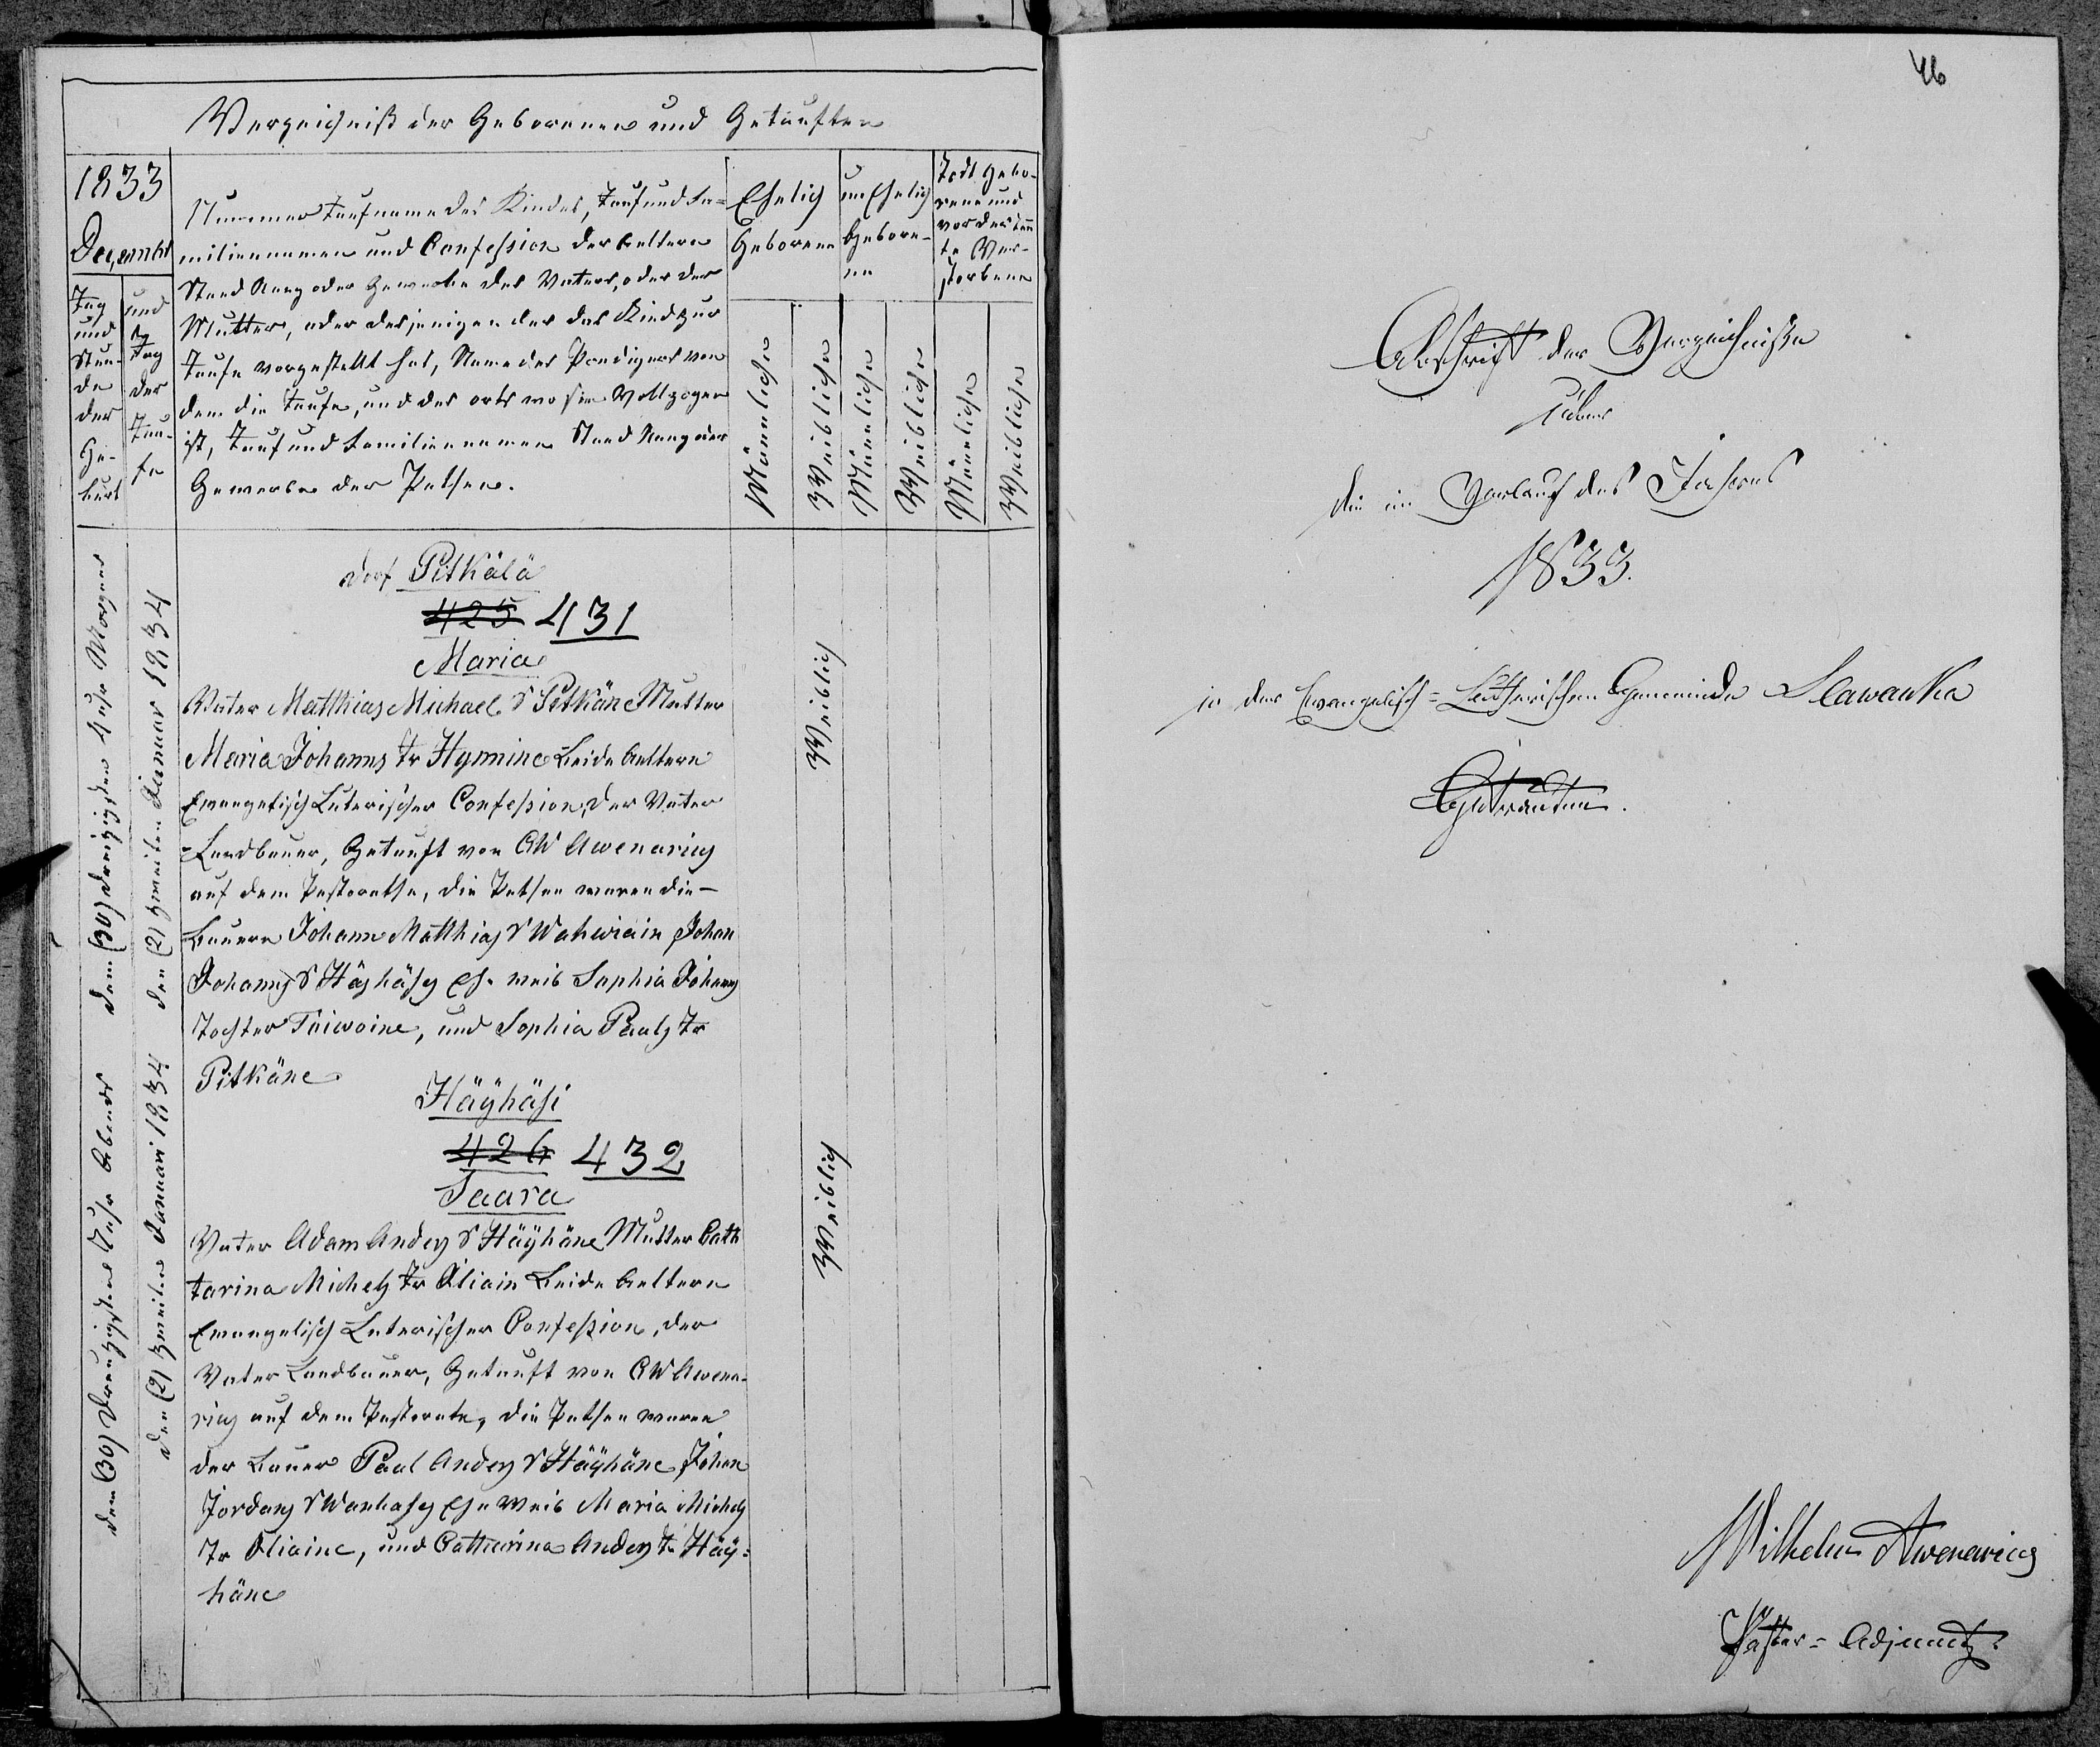 Verzeichniß der Geborenen und Getauften
1833
December
Tag
und
Stun-
de
der
Ge-
burt
und
Tag
der
Tau-
fe
Nummer Taufname des Kindes, Tauf und Fa-
miliennamen und Confession der Aeltern
Stand Rang oder Gewerbe des Vaters, oder der
Mutter, oder desjenigen der das Kind zur
Taufe vorgestellt hat, Name des Predigers von
dem die Taufe, und des orts wo sie Vollzogen
ist, Tauf und Familiennamen Stand Rang oder
Gewerbe der Pathen.
Ehelich
Geborene
unEhelich
Gebore-
ne
Todt Gebo-
rene und
vor der
te Ver-
storbene
Männliche
Weibliche
Männliche
Weibliche
Männliche
Weibliche
den (30) dreizigsten 4 uhr Morgens
den (2) zweiten Januar 1834
Dorf Pitkälä
425 431
Maria
Vater Matthias Michael S Pitkäne Mutter
Maria Johanns Tr Hynnine Beide Aeltern
Evangelisch Luterischer Confession, der Vater
Landbauer, Getauft von CW Awenarius
auf dem Pastorathe, die Pathen waren die
Bauern Johann Matthias S Wahwiain Johan
Johanns S Häyhäsys Eh. weib Sophia Johans
Tochter Toiwoine, und Sophia Pauls Tr
Pitkäne
Weiblich
den (30) Dreuzigsten Uhr Abends
den (2) Zweiten Januari 1834
Häyhäsi
426 432
Saara
Vater Adam Anders S Häyhäne Mutter Cath
tarina Michels Tr Oliain Beide Aeltern
Evangelisch Luterischer Confession, der
Vater Landbauer, Getauft von CW Awena-
rius auf dem Pastorate, die Pathen waren
der Bauer Paul Anders S Häyhäne Johan
Jordans S Wanhasys Ehe weib Maria Michels
Tr Oliaine, und Catharina Anders Tr Häy=
häne
Weiblich
46
Abschrift der Verzeichnisse
über
die im Verlauf des Jahres
1833.
in der Evangelisch=Lutherischen Gemeinde Slawanka
Getrauten.
Wilhelm Awenarius
Pastor=Adjunct.